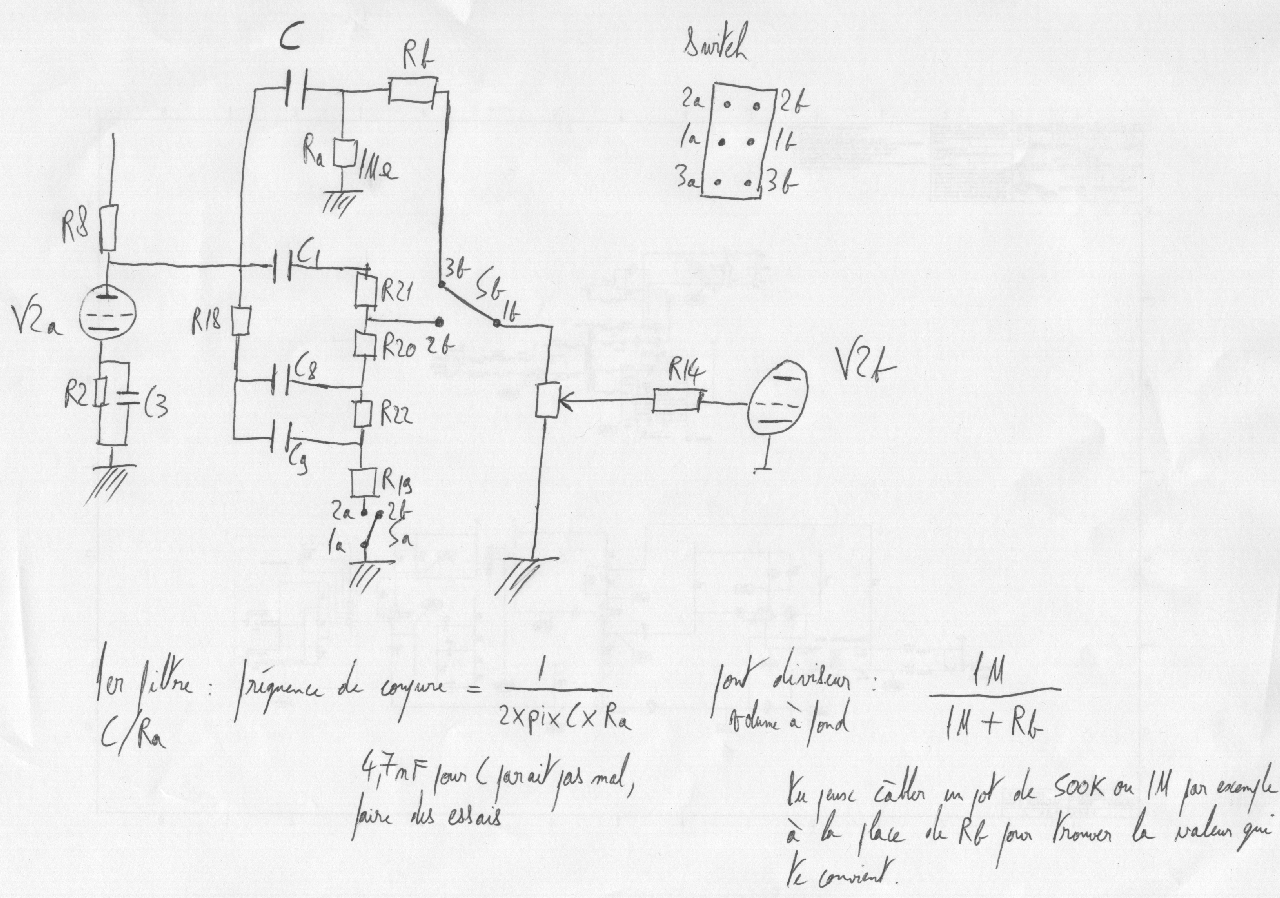 C
Rb
Switch
2a 2b
1a 1b
3a 3b
Ra 1MΩ
R8
C1
3b
Sb
1b
R21
V2a
R18
R20 2b
C8
R14
V2b
R2
C3
R22
C9
R19
2a 2b
1a Sa
1er filtre : fréquence de coupure = 1
2xpixCxRa
C/Ra
4,7nF pour C parait pas mal,
faire des essais
pont diviseur : 1M
1M + Rb
volume à fond
tu peux câbler un pot de 500K ou 1M par exemple
à la place de Rb pour trouver la valeur qui
te convient.